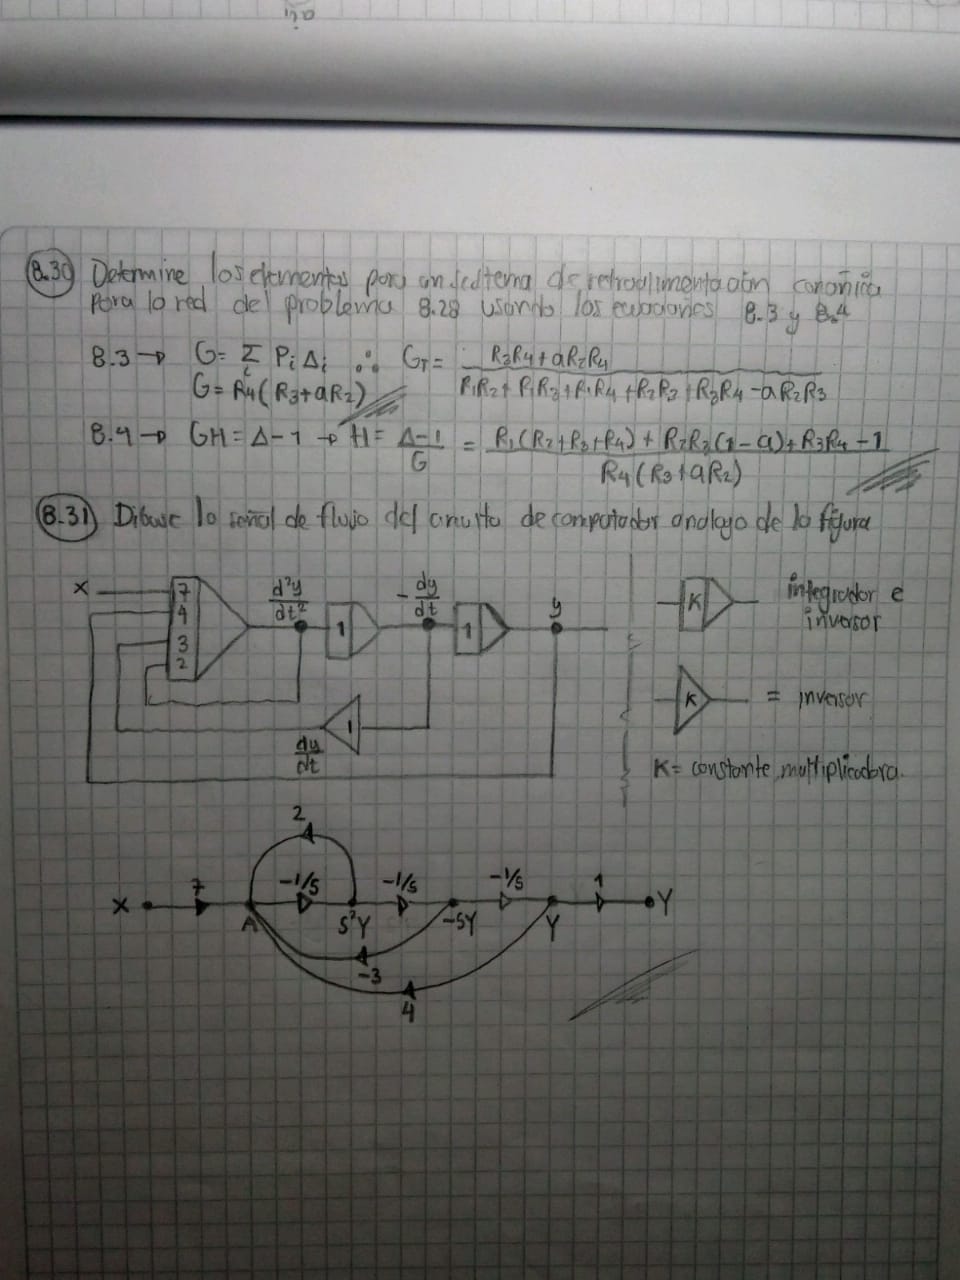 8.30 Determine los elementos para un sistema de retroalimentación canónica
para la red del problema 8.28 usando las ecuaciones 8.3 y 8.4
8.3 → G = Σ Pi Δi ∴ GT = R3R4 + aR2R4
i
R1R2 + R1R3 + R1R4 + R2R3 + R3R4 - aR2R3
G = R4(R3 + aR2)
8.4 → GH = Δ - 1 → H = Δ-1 = R1(R2+R3+R4) + R2R3(1-a) + R3R4 - 1
G R4(R3+aR2)
8.31 Dibuje la señal de flujo del circuito de computador analogo de la figura
X 7 4 3 2 d²y/dt² 1 - dy/dt 1 y
K integrador e
inversor
K = inversor
1
dy/dt
K = constante multiplicadora.
2
X 7 -1/S -1/S -1/S 1 Y
A S²Y -SY Y
-3
4